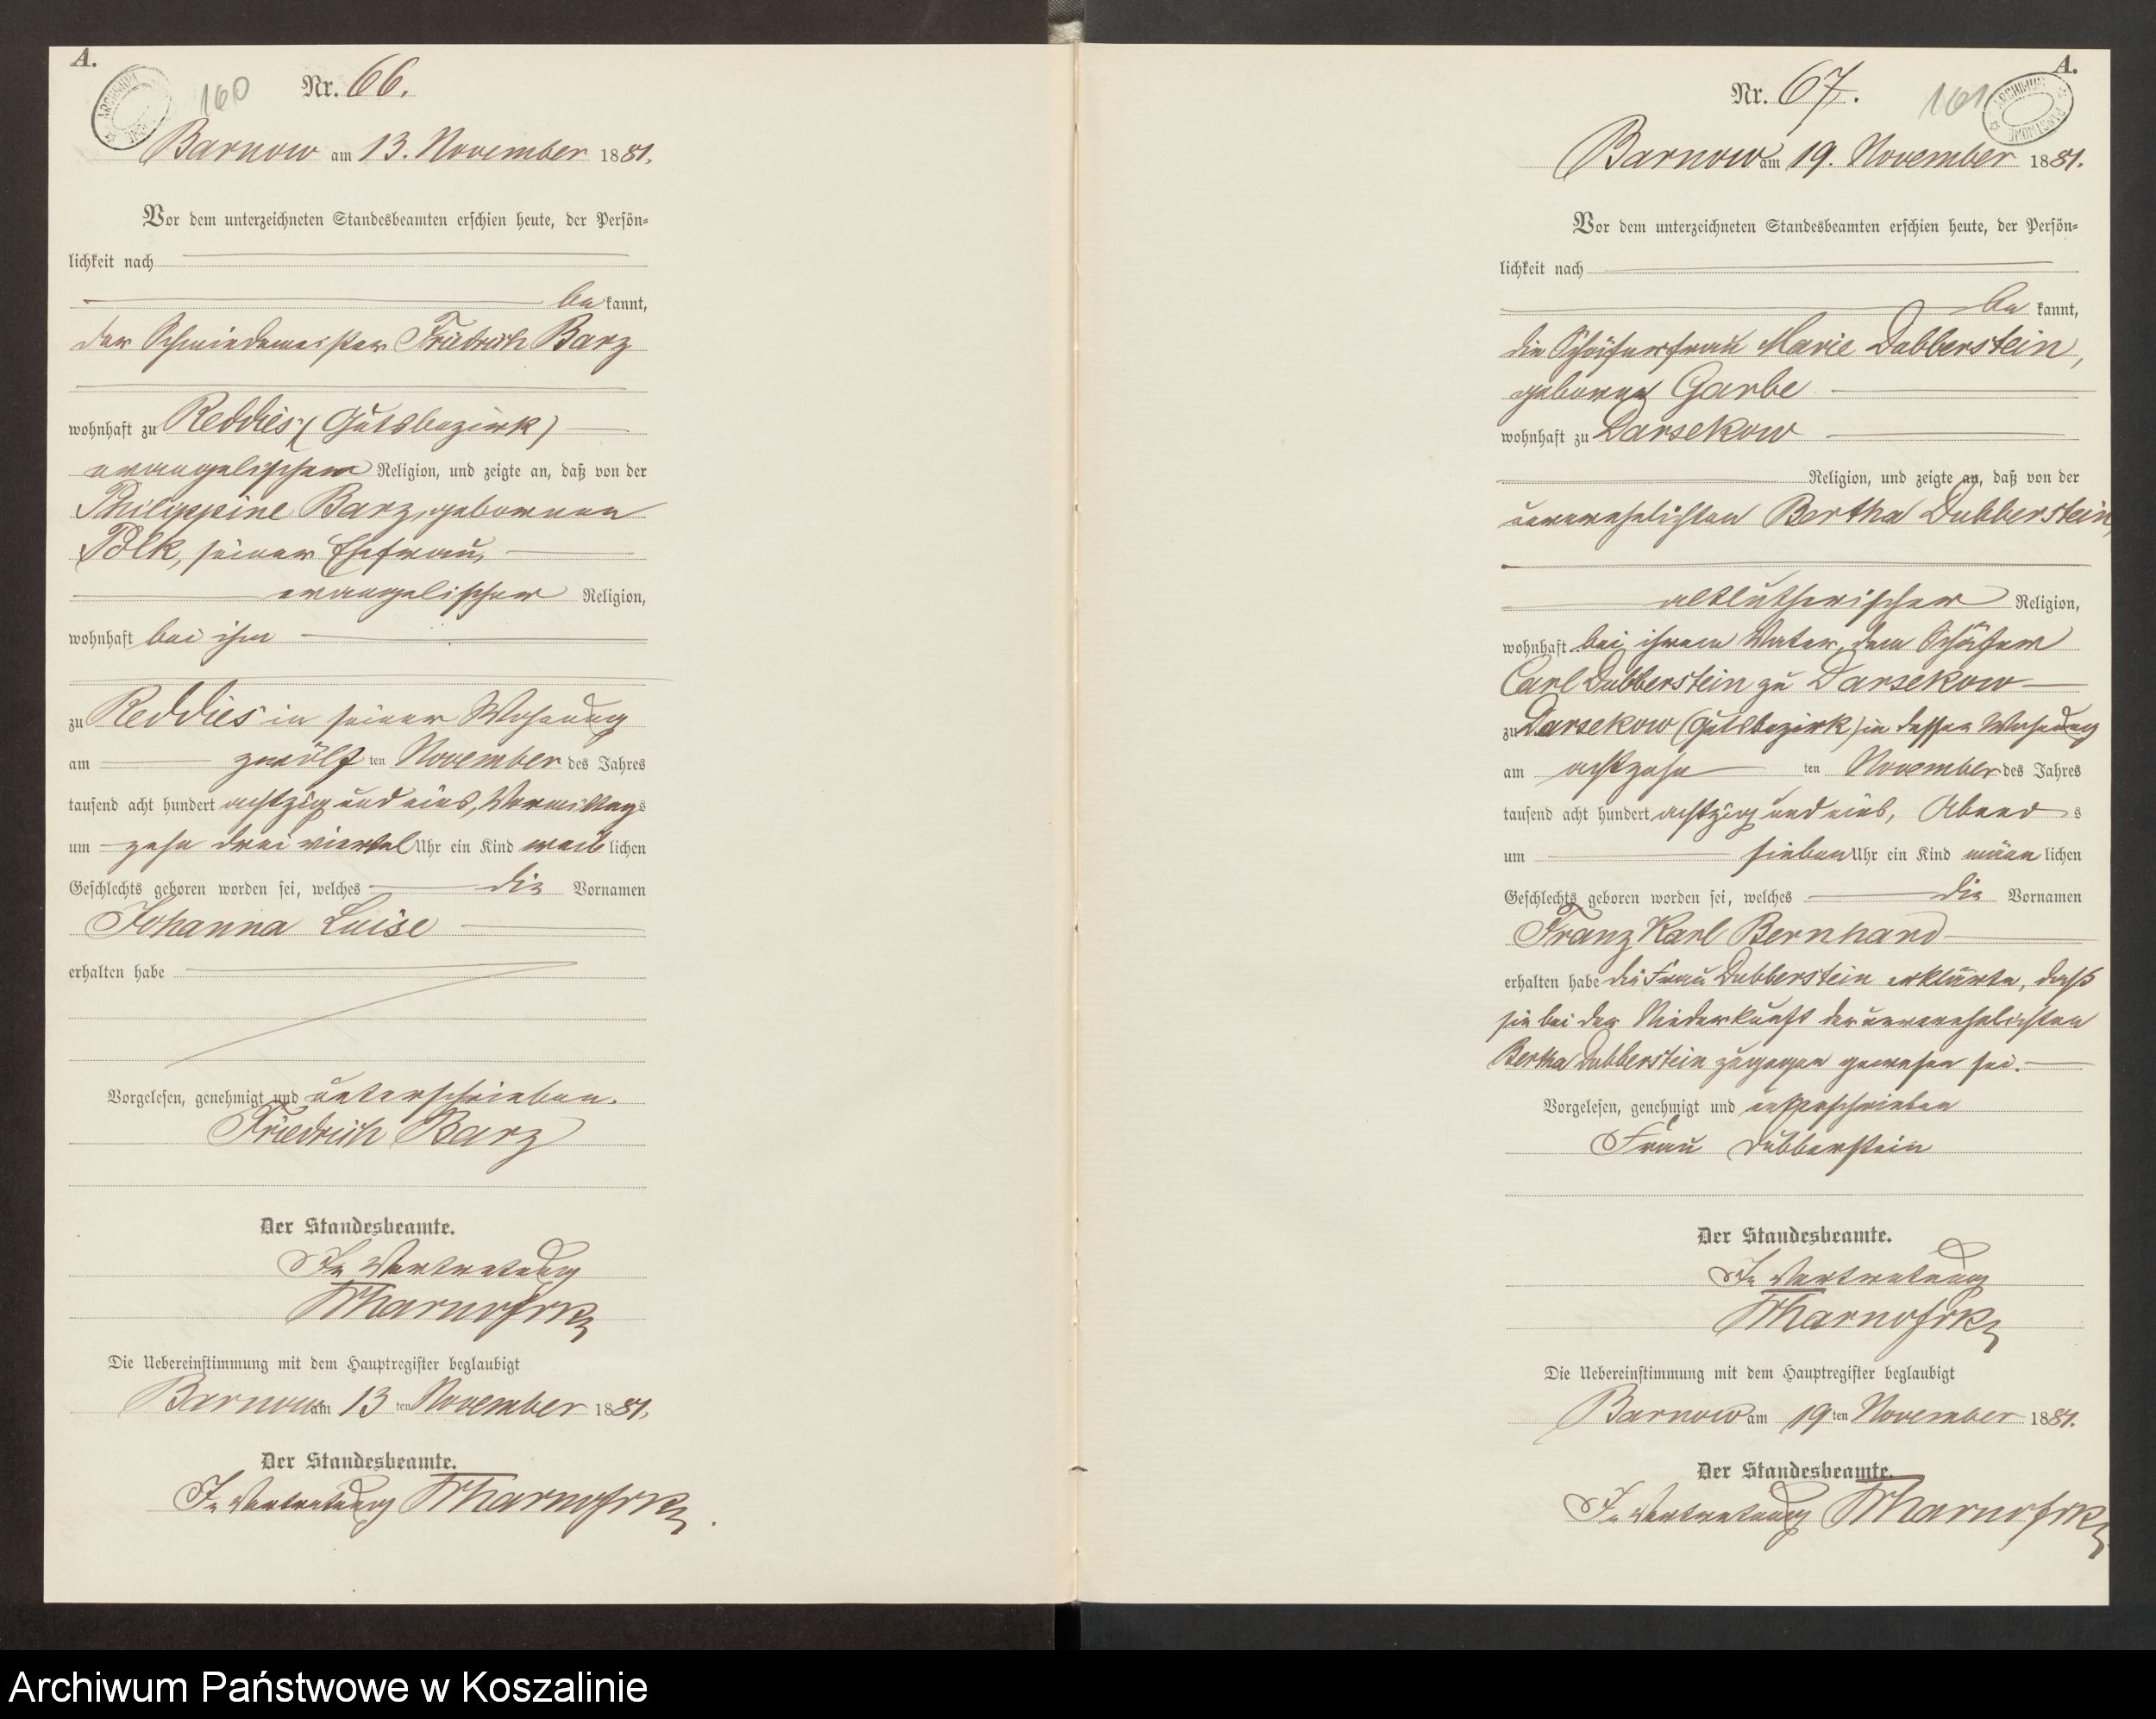 A.
160
Nr. 66.
Barnow am 13. November 1881.
Vor dem unterzeichneten Standesbeamten erschien heute, der Persön-
lichkeit nach
bekannt,
der Schmiedemeister Friedrich Barz
wohnhaft zu Reddies (Gutsbezirk)
evangelischer Religion, und zeigte an, daß von der
Philippine Barz, geborenen
Polk, seiner Ehefrau,
evangelischer Religion,
wohnhaft bei ihm
zu Reddies in seiner Wohnung
am zwölf ten November des Jahres
tausend acht hundert achtzig und eins, Vormittags
um zehn drei viertel Uhr ein Kind weiblichen
Geschlechts geboren worden sei, welches die Vornamen
Johanna Luise
erhalten habe
Vorgelesen, genehmigt und unterschrieben.
Friedrich Barz
Der Standesbeamte.
In Vertretung
Die Uebereinstimmung mit dem Hauptregister beglaubigt
Barnow am 13 ten November 1881.
Der Standesbeamte.
In Vertretung
A.
161
ARCHIWUM PAŃSTWOWE
Nr. 67.
Barnow am 19. November 1881.
Vor dem unterzeichneten Standesbeamten erschien heute, der Persön-
lichkeit nach
bekannt,
die Schäferfrau Marie Dubberstein,
geborene Garbe
wohnhaft zu Darsekow
Religion, und zeigte an, daß von der
unverehelichten Bertha Dubberstein,
altlutherischer Religion,
wohnhaft bei ihrem Vater, dem Schäfer
Carl Dubberstein zu Darsekow
zu Darsekow (Gutsbezirk) in dessen Wohnung
am achtzehn ten November des Jahres
tausend acht hundert achtzig und eins, Abends
um sieben Uhr ein Kind männlichen
Geschlechts geboren worden sei, welches die Vornamen
Franz Karl Bernhard
erhalten habe die Frau Dubberstein erklärte, daß
sie bei der Niederkunft der unverehelichten
Bertha Dubberstein zugegen gewesen sei.
Vorgelesen, genehmigt und unterschrieben
Frau Dubberstein
Der Standesbeamte.
In Vertretung
Die Uebereinstimmung mit dem Hauptregister beglaubigt
Barnow am 19 ten November 1881.
Der Standesbeamte.
In Vertretung
Archiwum Państwowe w Koszalinie